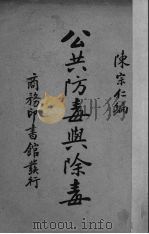 陳宗仁編
公共防毒與除毒
商務印書館發行
www.mtoou.info